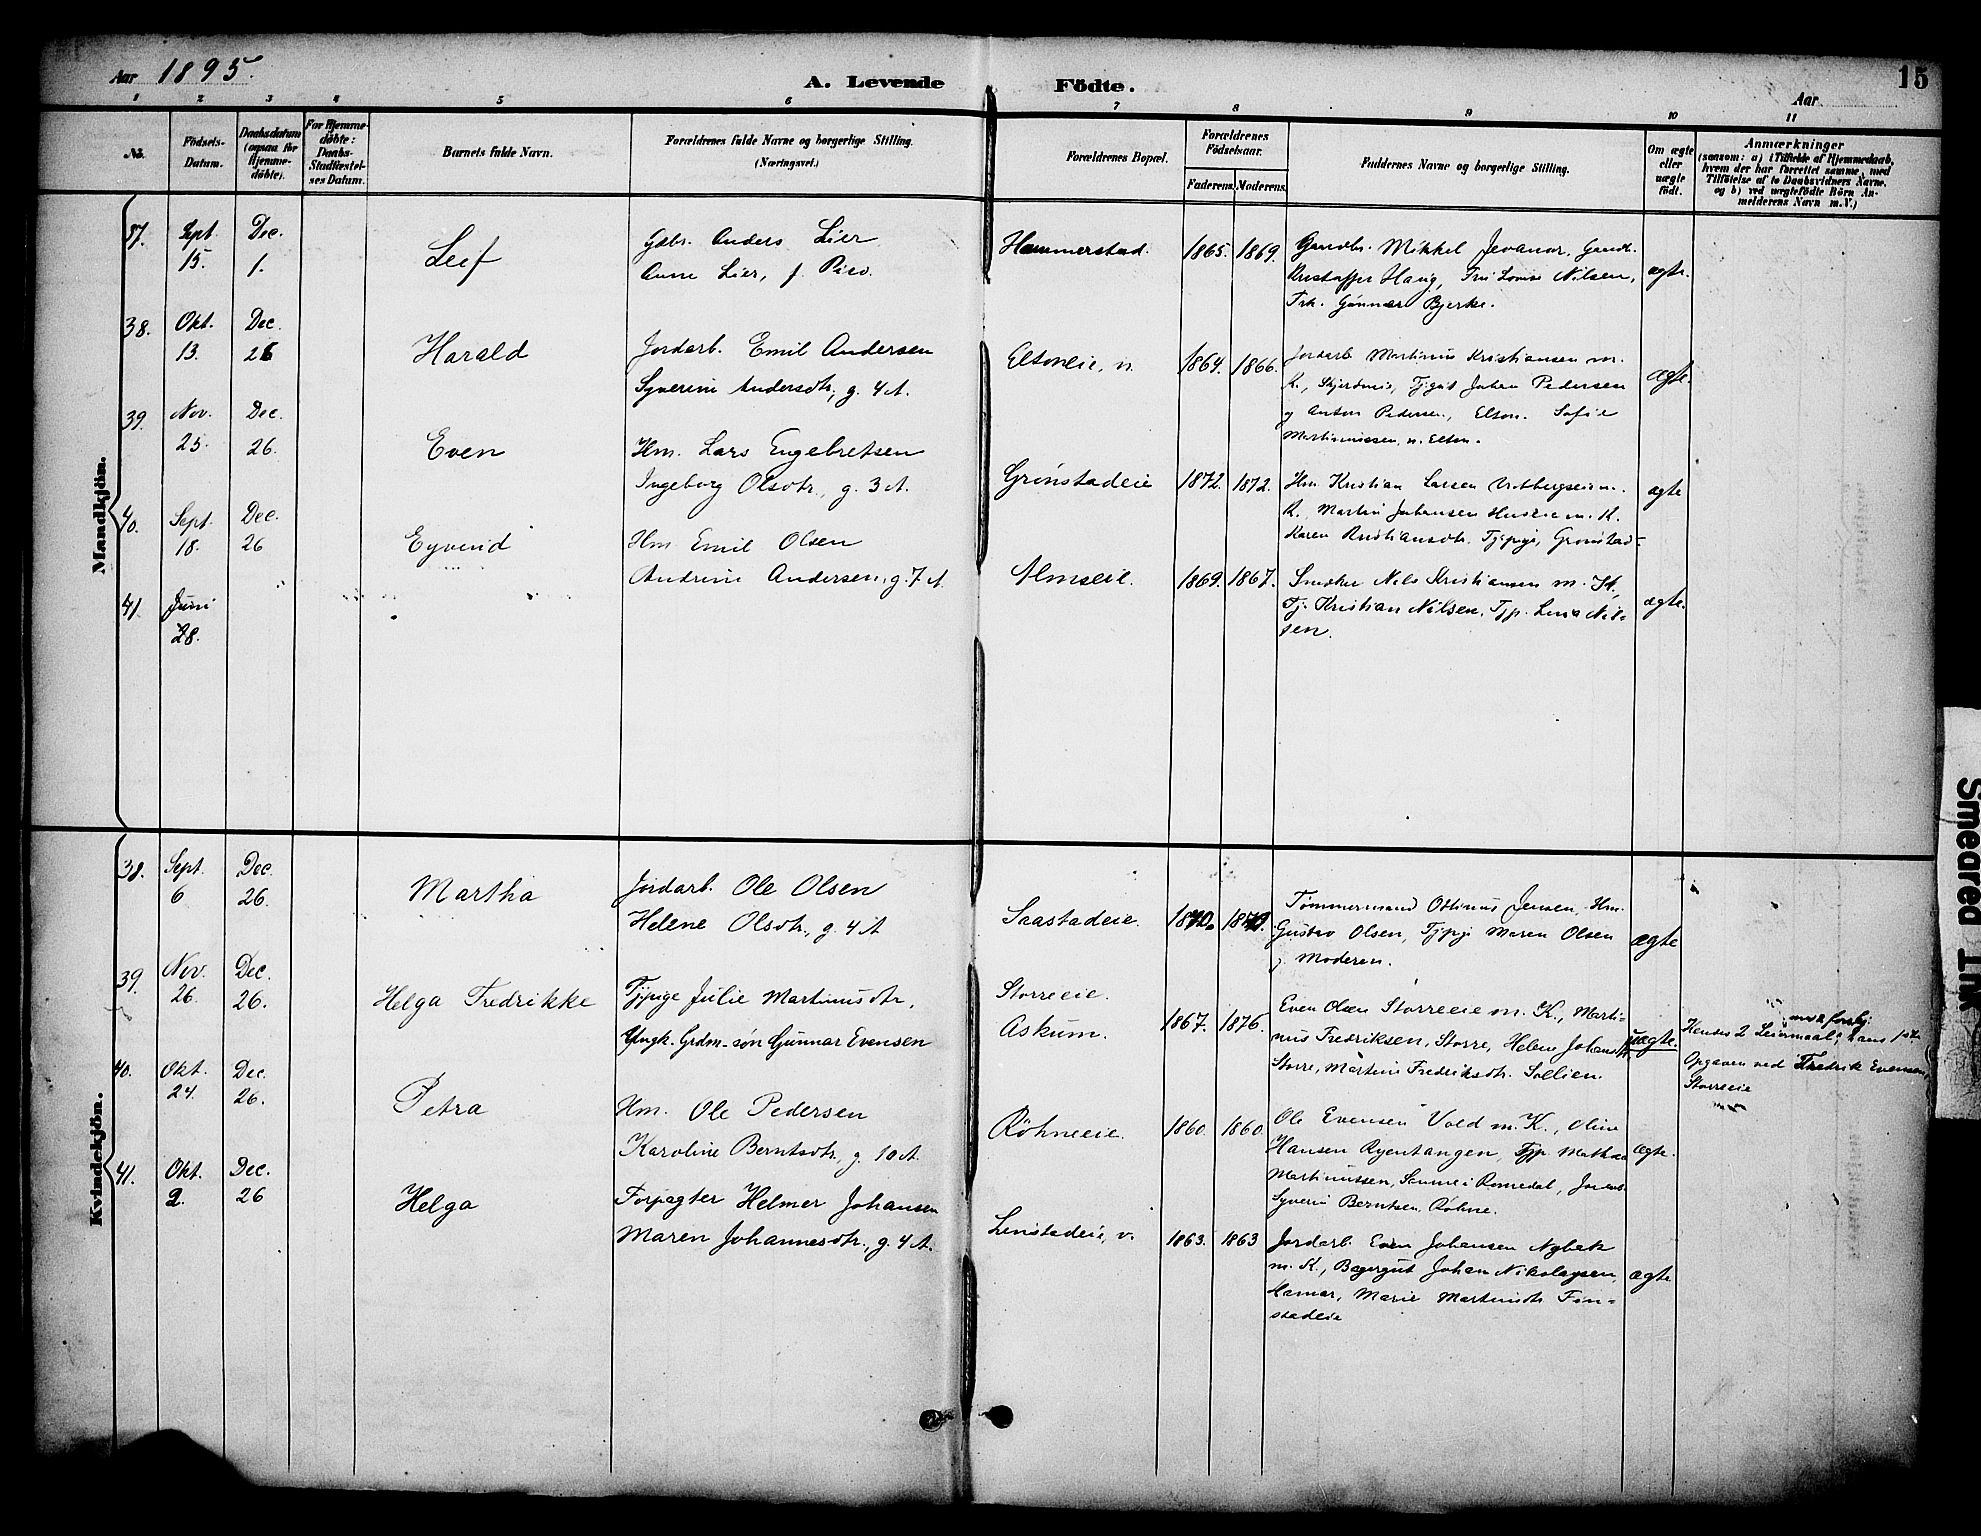 Aar 1895.
A. Levende Födte.
Aar
15
1 2 3 4 5 6 7 8 9 10 11
No.
Födsels-Datum.
Daabsdatum (ogsaa for Hjemme-döbte).
For Hjemme-döbte: Daabs-Stadfæstel-ses Datum.
Barnets fulde Navn.
Forældrenes fulde Navne og borgerlige Stilling.
(Næringsvei.)
Forældrenes Bopæl.
Forældrenes Födselsaar.
Faderens. Moderens.
Faddernes Navne og borgerlige Stilling.
Om ægte eller uægte födt.
Anmærkninger
(saasom: a) i Tilfælde af Hjemmedaab,
hvem der har forrettet samme, med
Tilföielse af to Daabsvidners Navne,
og b) ved uægtefödte Börn An-
melderens Navn m.V.)
Mandkjön.
37. Sept 15. Dec. 1. Leif
Gdbr. Anders Lier
Anne Lier, f.
Hammerstad. 1865. 1869.
Gaardbr. Mikkel
Haug, Nilsen,
Gunnar Bjerke.
ægte.
38. Okt. 13. Dec. 26 Harald
Jordarb. Emil Andersen
Syverine Andersdtr., g. 4 A.
Eltoneie, n. 1864. 1866.
Jordarb. Martinus Kristiansen m.
K., Johan Pedersen
og Anton Pedersen, Elton. Sofie
Martinussen, n. Elton.
ægte.
39. Nov. 25. Dec. 26. Even
Hm. Lars Engebretsen
Ingeborg Olsdtr., g. 3 A.
Grönstadeie 1872. 1872.
Hm. Kristian Larsen
K., Johansen m. K.
Karen Kristiansdtr. Tjpige, Grönstad
ægte
40. Sept. 18. Dec. 26 Eyvind
Hm. Emil Olsen
Andrine Andersen, g. 7 A
Almseie. 1869. 1867.
Nils Kristiansen m. K.
Tj. Kristian Nilsen, Tjp. Nil-
sen.
ægte.
41. Juni 28.
Kvindekjön.
38. Sept. 6 Dec. 26. Martha
Jordarb. Ole Olsen
Helene Olsdtr., g. 4 A
Saastadeie. 1870.
Tömmermand Ottinus Jensen, Hm.
Gustav Olsen, Tjpige Maren Olsen
og Moderen.
ægte
39. Nov. 26. Dec. 26. Helga Fredrikke
Tjpige Julie Martinusdtr.
Ungk. Grdm.-sön Gunnar Evensen
Storreeie.
Askum. 1867. 1876.
Even Olsen Storreeie m. K., Marti-
nus Fredriksen, Storre, Helene
Storre, Fredriksdtr. Sollien
uægte.
Hendes 2 Leiermaal, hans 1ste
Opgaven ved Fredrik Evensen,
Storreeie
40. Okt. 24. Dec. 26. Petra
Hm. Ole Pedersen
Karoline Berntsdtr., g. 10 A.
Röhneeie. 1860. 1860.
Ole Evensen Vold m. K.,
Hansen Ryentangen, Tjp.
Martinussen, i Romedal,
Berntsen Röhne.
ægte.
41. Okt. 2. Dec. 26 Helga
Forpagter Helmer Johansen
Maren Johannesdtr., g. 4 A.
Linstadeie, v. 1863. 1863
Jordarb. Even Johansen Nybæk
m. K., Bagergut Johan Nikolaysen,
Hamar, Marie Martinsdtr. Fin-
stadeie
ægte
Smeared Ink